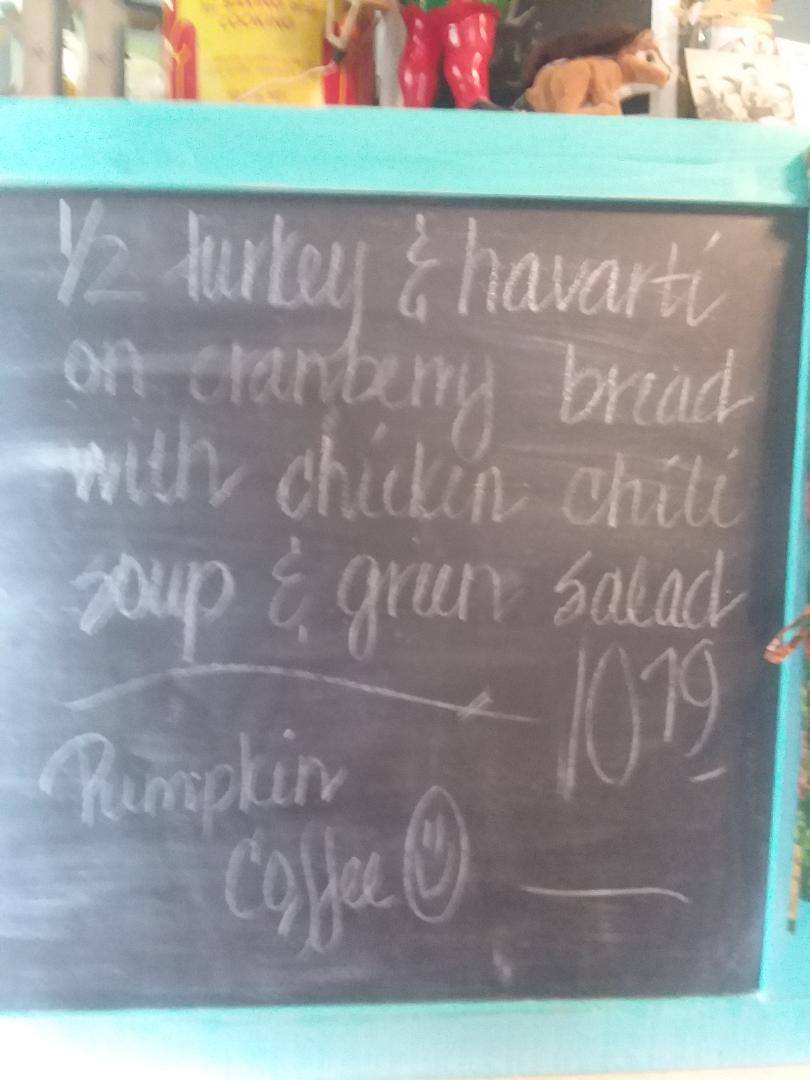 COOKING
1/2 turkey & havarti
on cranberry bread
with chicken chili
soup & green salad
10 79
Pumpkin
Coffee